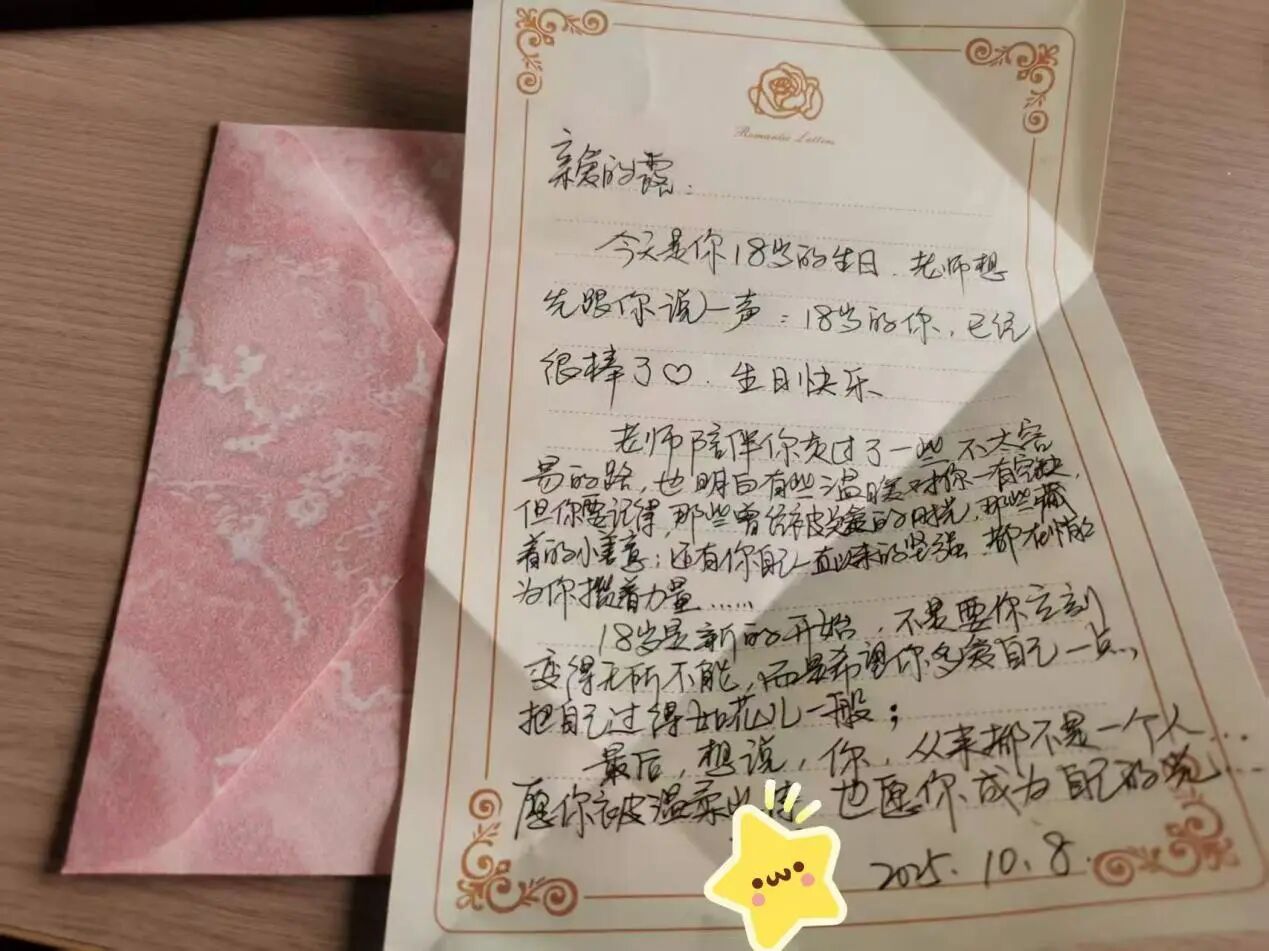 Romantic Letters
亲爱的露:
今天是你18岁的生日.老师想
先跟你说一声:18岁的你,已经
很棒了♡.生日快乐
老师陪伴你走过了一些不太容
易的路,也明白有些温暖对你一有空缺,
但你要记得,那些曾经被关爱的时光,那些藏
着的小美意;还有你自己一直以来的坚强,都在悄悄
为你攒着力量……
18岁是新的开始,不是要你立刻
变得无所不能,而是希望你多爱自己一点,
把自己过得如花儿一般;
最后,想说,你,从来都不是一个人…
愿你被温柔以待,也愿你成为自己的光…
2025.10.8